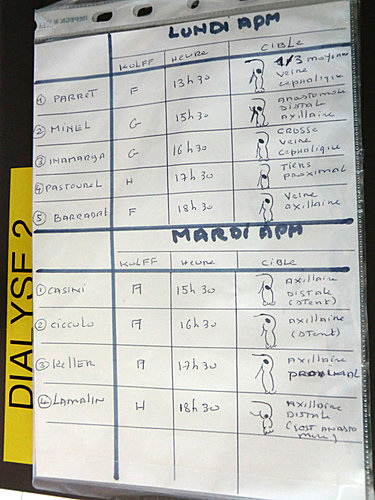 LUNDI APM
KOLFF HEURE CIBLE
① PARRET F 13h30 1/3 moyen
veine
cephalique
② MINEL G 15h30 ANASTOMOSE
DISTALE
AXILLAIRE
③ INAMARYA G 16h30 CROSSE
veine
cephalique
④ PASTOUREL H 17h30 TIERS
PROXIMAL
⑤ BARRADAT F 18h30 Veine
axillaire
MARDI APM
KOLFF HEURE CIBLE
① CASINI A 15h30 AXILLAIRE
DISTALE
(STENT)
② CICCULO A 16h30 AXILLAIRE
(STENT)
③ KELLER A 17h30 AXILLAIRE
PROXIMAL
④ LAMALIN H 18h30 AXILLAIRE
DISTALE
(POST ANASTO
MOSE)
DIALYSE 2